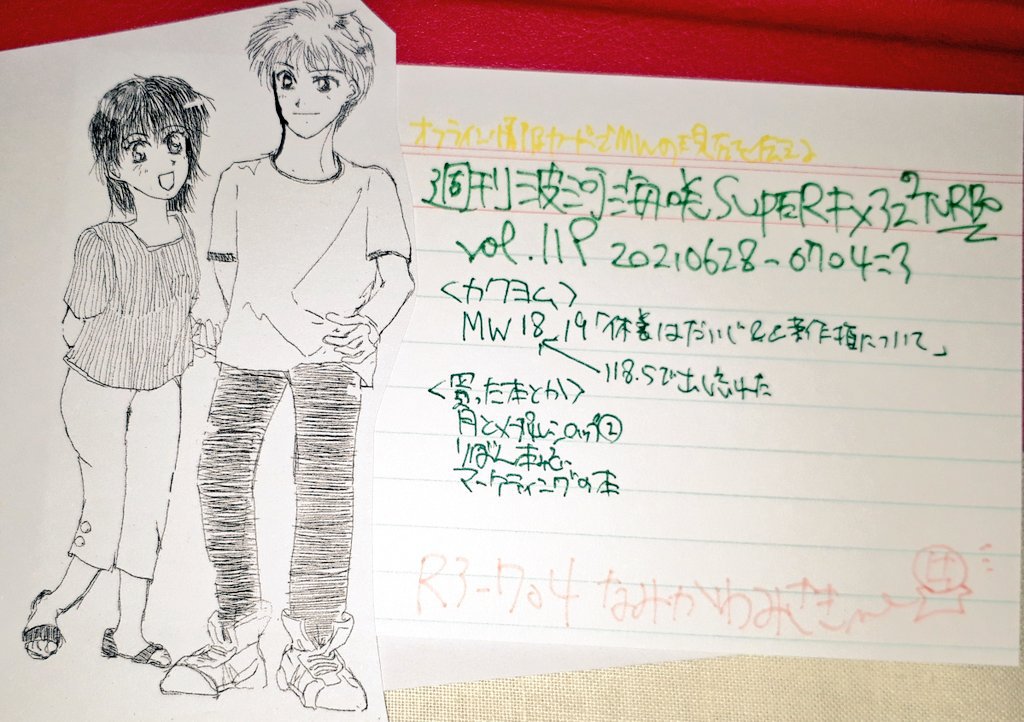 オフライン情報カード♪MWの現在を伝える
週刊波河海咲SupeRキメ32²TuRBo
vol.119 20210628-0704=3
<カクヨム>
MW18.19「休養はだいじ&と著作権について」
118.5で出し忘れた
<買った本とか>
月と
りぼん本誌、
マーケティングの本
R3-704 なみかわみさき